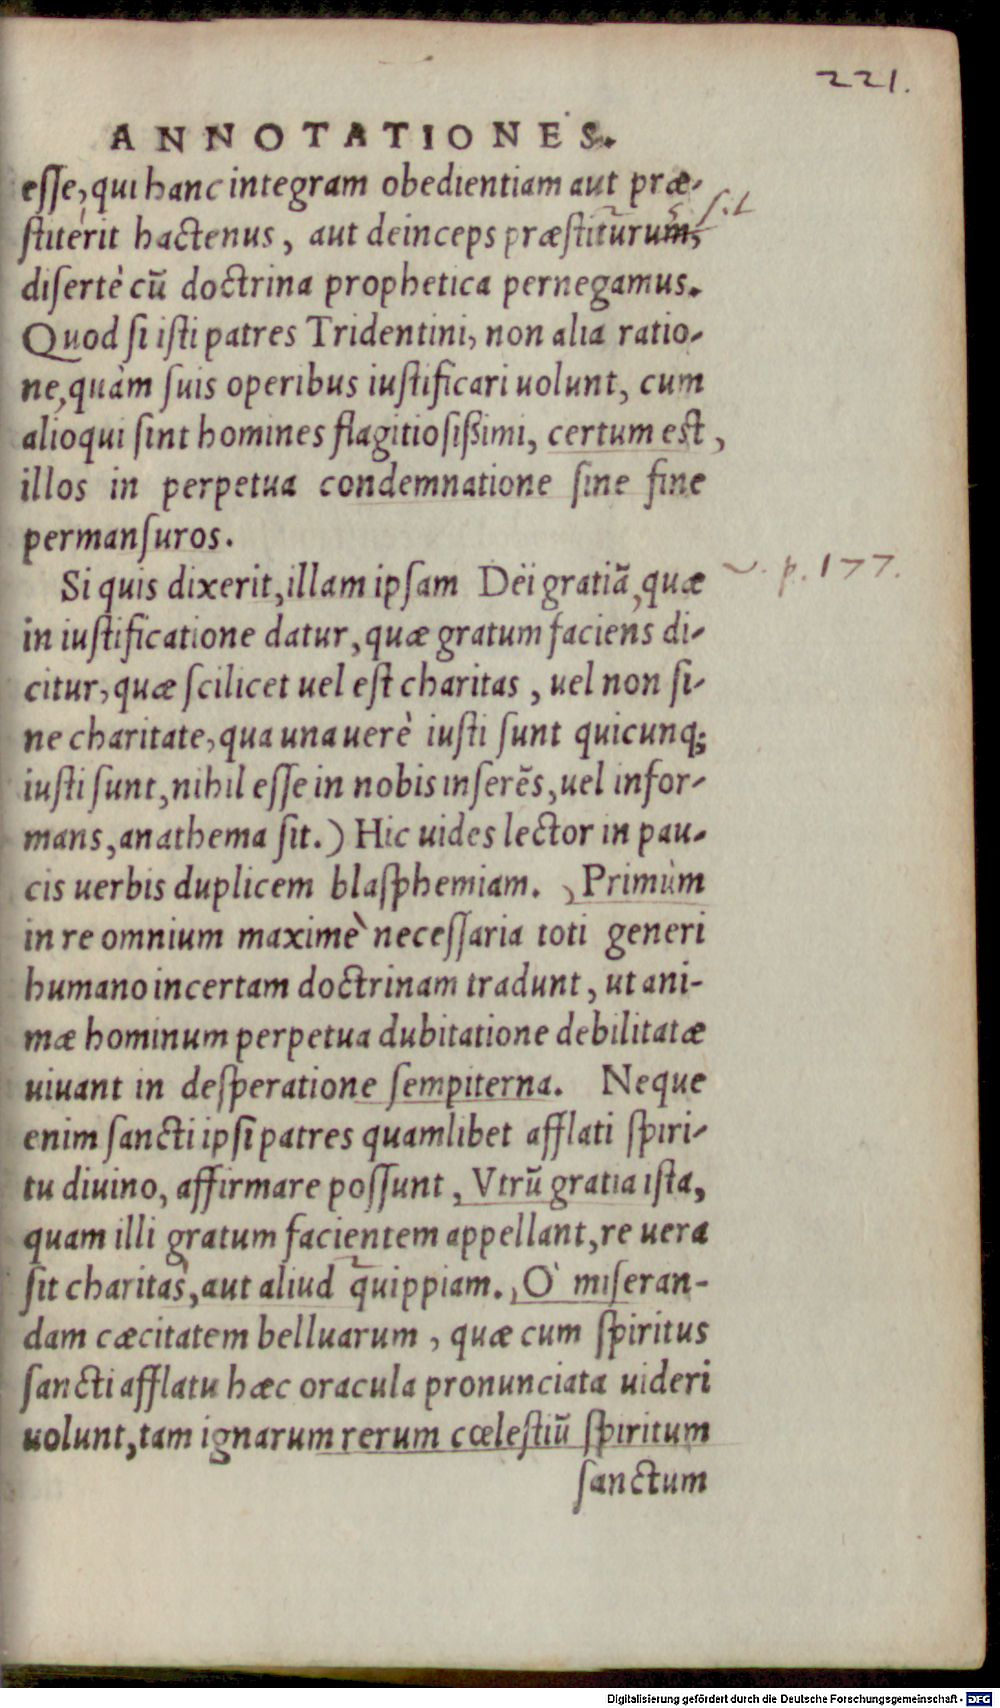 221.
ANNOTATIONES.
esse, qui hanc integram obedientiam aut præ-
stiterit hactenus, aut deinceps præstiturum, sit
disertè cū doctrina prophetica pernegamus.
Quod si isti patres Tridentini, non alia ratio-
ne, quàm suis operibus iustificari uolunt, cum
alioqui sint homines flagitiosißimi, certum est,
illos in perpetua condemnatione sine fine
permansuros.
Si quis dixerit, illam ipsam Dei gratiā, quæ p. 177.
in iustificatione datur, quæ gratum faciens di-
citur, quæ scilicet uel est charitas, uel non si-
ne charitate, qua una uerè iusti sunt quicunq;
iusti sunt, nihil esse in nobis inserēs, uel infor-
mans, anathema sit.) Hic uides lector in pau-
cis uerbis duplicem blasphemiam. Primùm
in re omnium maximè necessaria toti generi
humano incertam doctrinam tradunt, ut ani-
mæ hominum perpetua dubitatione debilitatæ
uiuant in desperatione sempiterna. Neque
enim sancti ipsi patres quamlibet afflati spiri-
tu diuino, affirmare possunt, Vtrū gratia ista,
quam illi gratum facientem appellant, re uera
sit charitas, aut aliud quippiam. O miseran-
dam cæcitatem belluarum, quæ cum spiritus
sancti afflatu hæc oracula pronunciata uideri
uolunt, tam ignarum rerum cœlestiū spiritum
sanctum
Digitalisierung gefördert durch die Deutsche Forschungsgemeinschaft - DFG